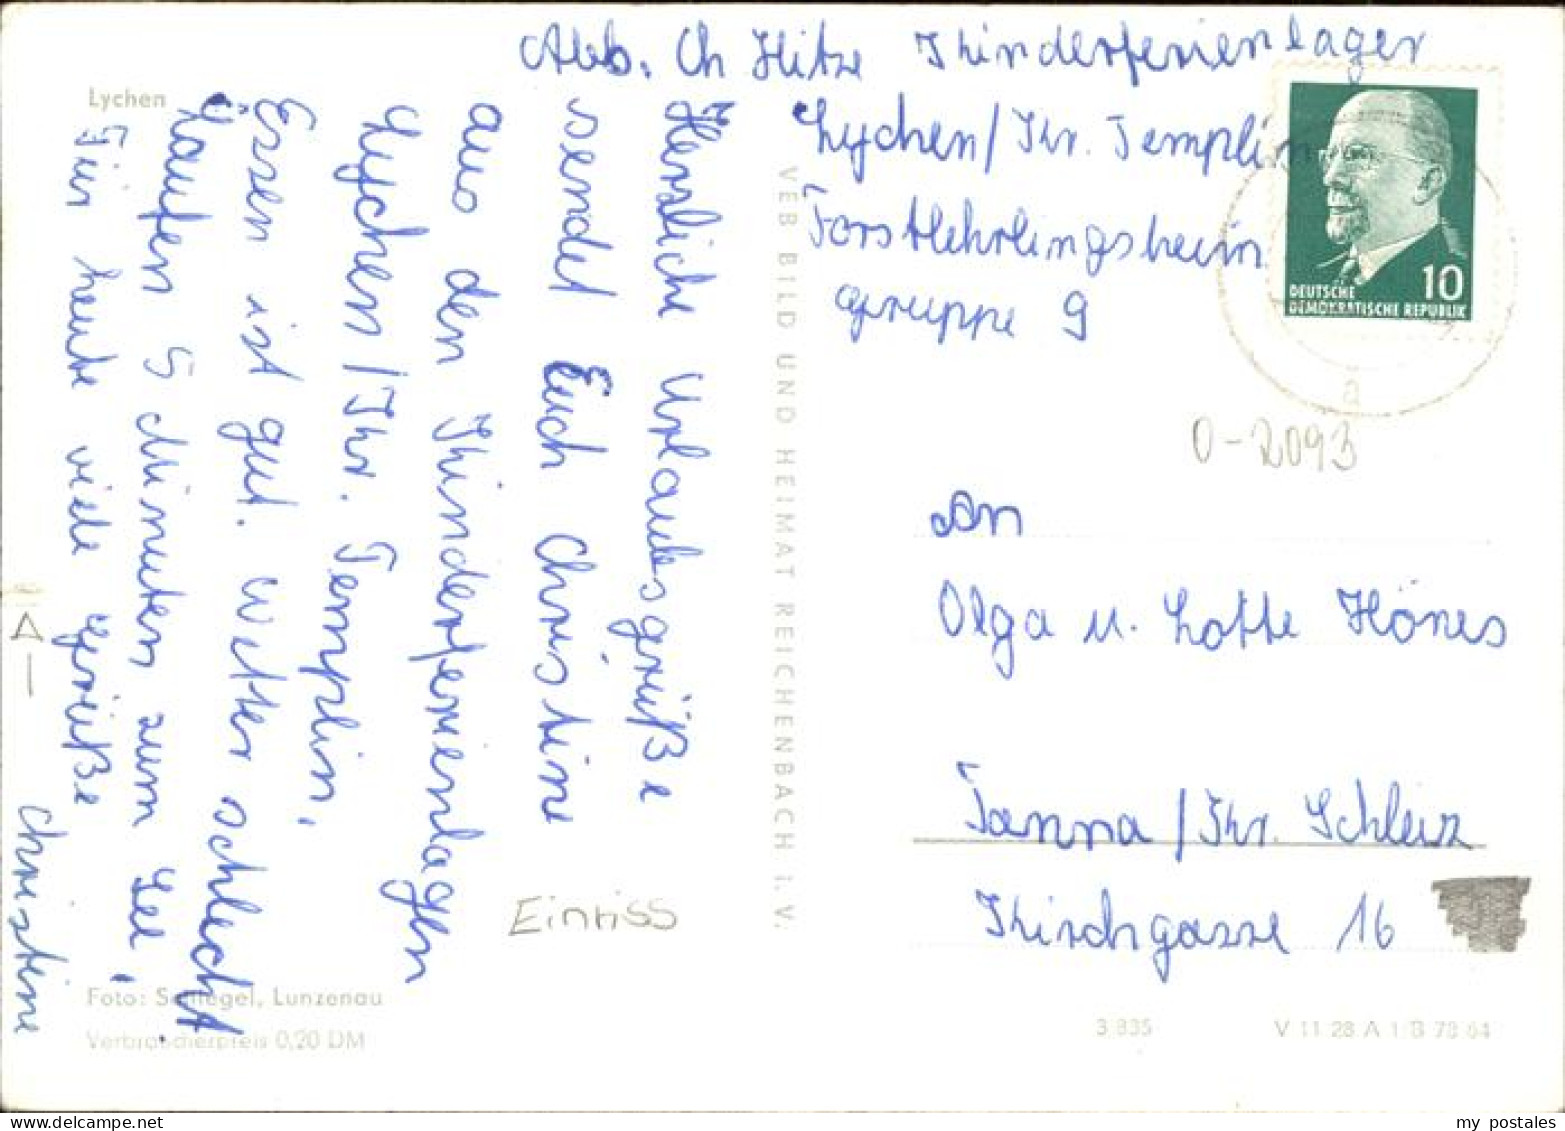 Abb. Ch Hitze Kinderferienlager
Lychen/Kr. Templin
Forstlehrlingsheim
gruppe 9
Lychen
Herzliche Urlaubsgrüße
sendet Euch Christine
aus den Kinderferienlagen
Lychen/Kr. Templin,
Essen ist gut. Wetter schlecht.
Laufen 5 Minuten zum See,
Für heute viele Grüße
Christine
VEB BILD UND HEIMAT REICHENBACH I. V.
DEUTSCHE
DEMOKRATISCHE REPUBLIK
10
a
0-2093
An
Olga u. Lotte Hönes
Tanna/Kr. Schleiz
Kirchgasse 16
Einriss
A
Foto: Schlegel, Lunzenau
Verbraucherpreis 0,20 DM
3 835
V 11 28 A 1/B 78 64
my postales